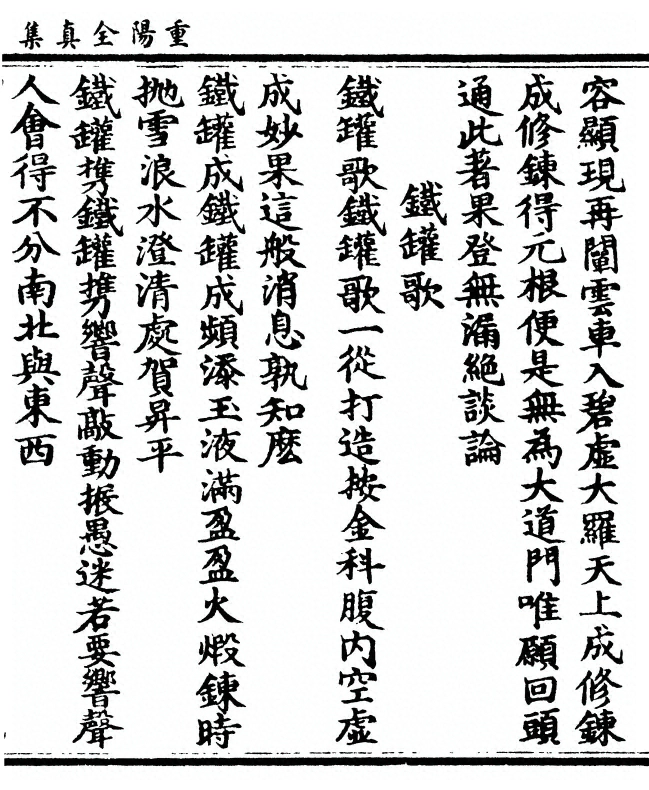 重陽全真集
容顯現再闡雲車入碧虛大羅天上成修鍊
成修鍊得元根便是無為大道門唯願回頭
通此著果登無漏絕談論
鐵罐歌
鐵罐歌鐵罐歌一從打造按金科腹內空虛
成妙果這般消息孰知麽
鐵罐成鐵罐成頻添玉液滿盈盈火煅鍊時
拋雪浪水澄清處賀昇平
鐵罐携鐵罐携響聲敲動振愚迷若要響聲
人會得不分南北與東西